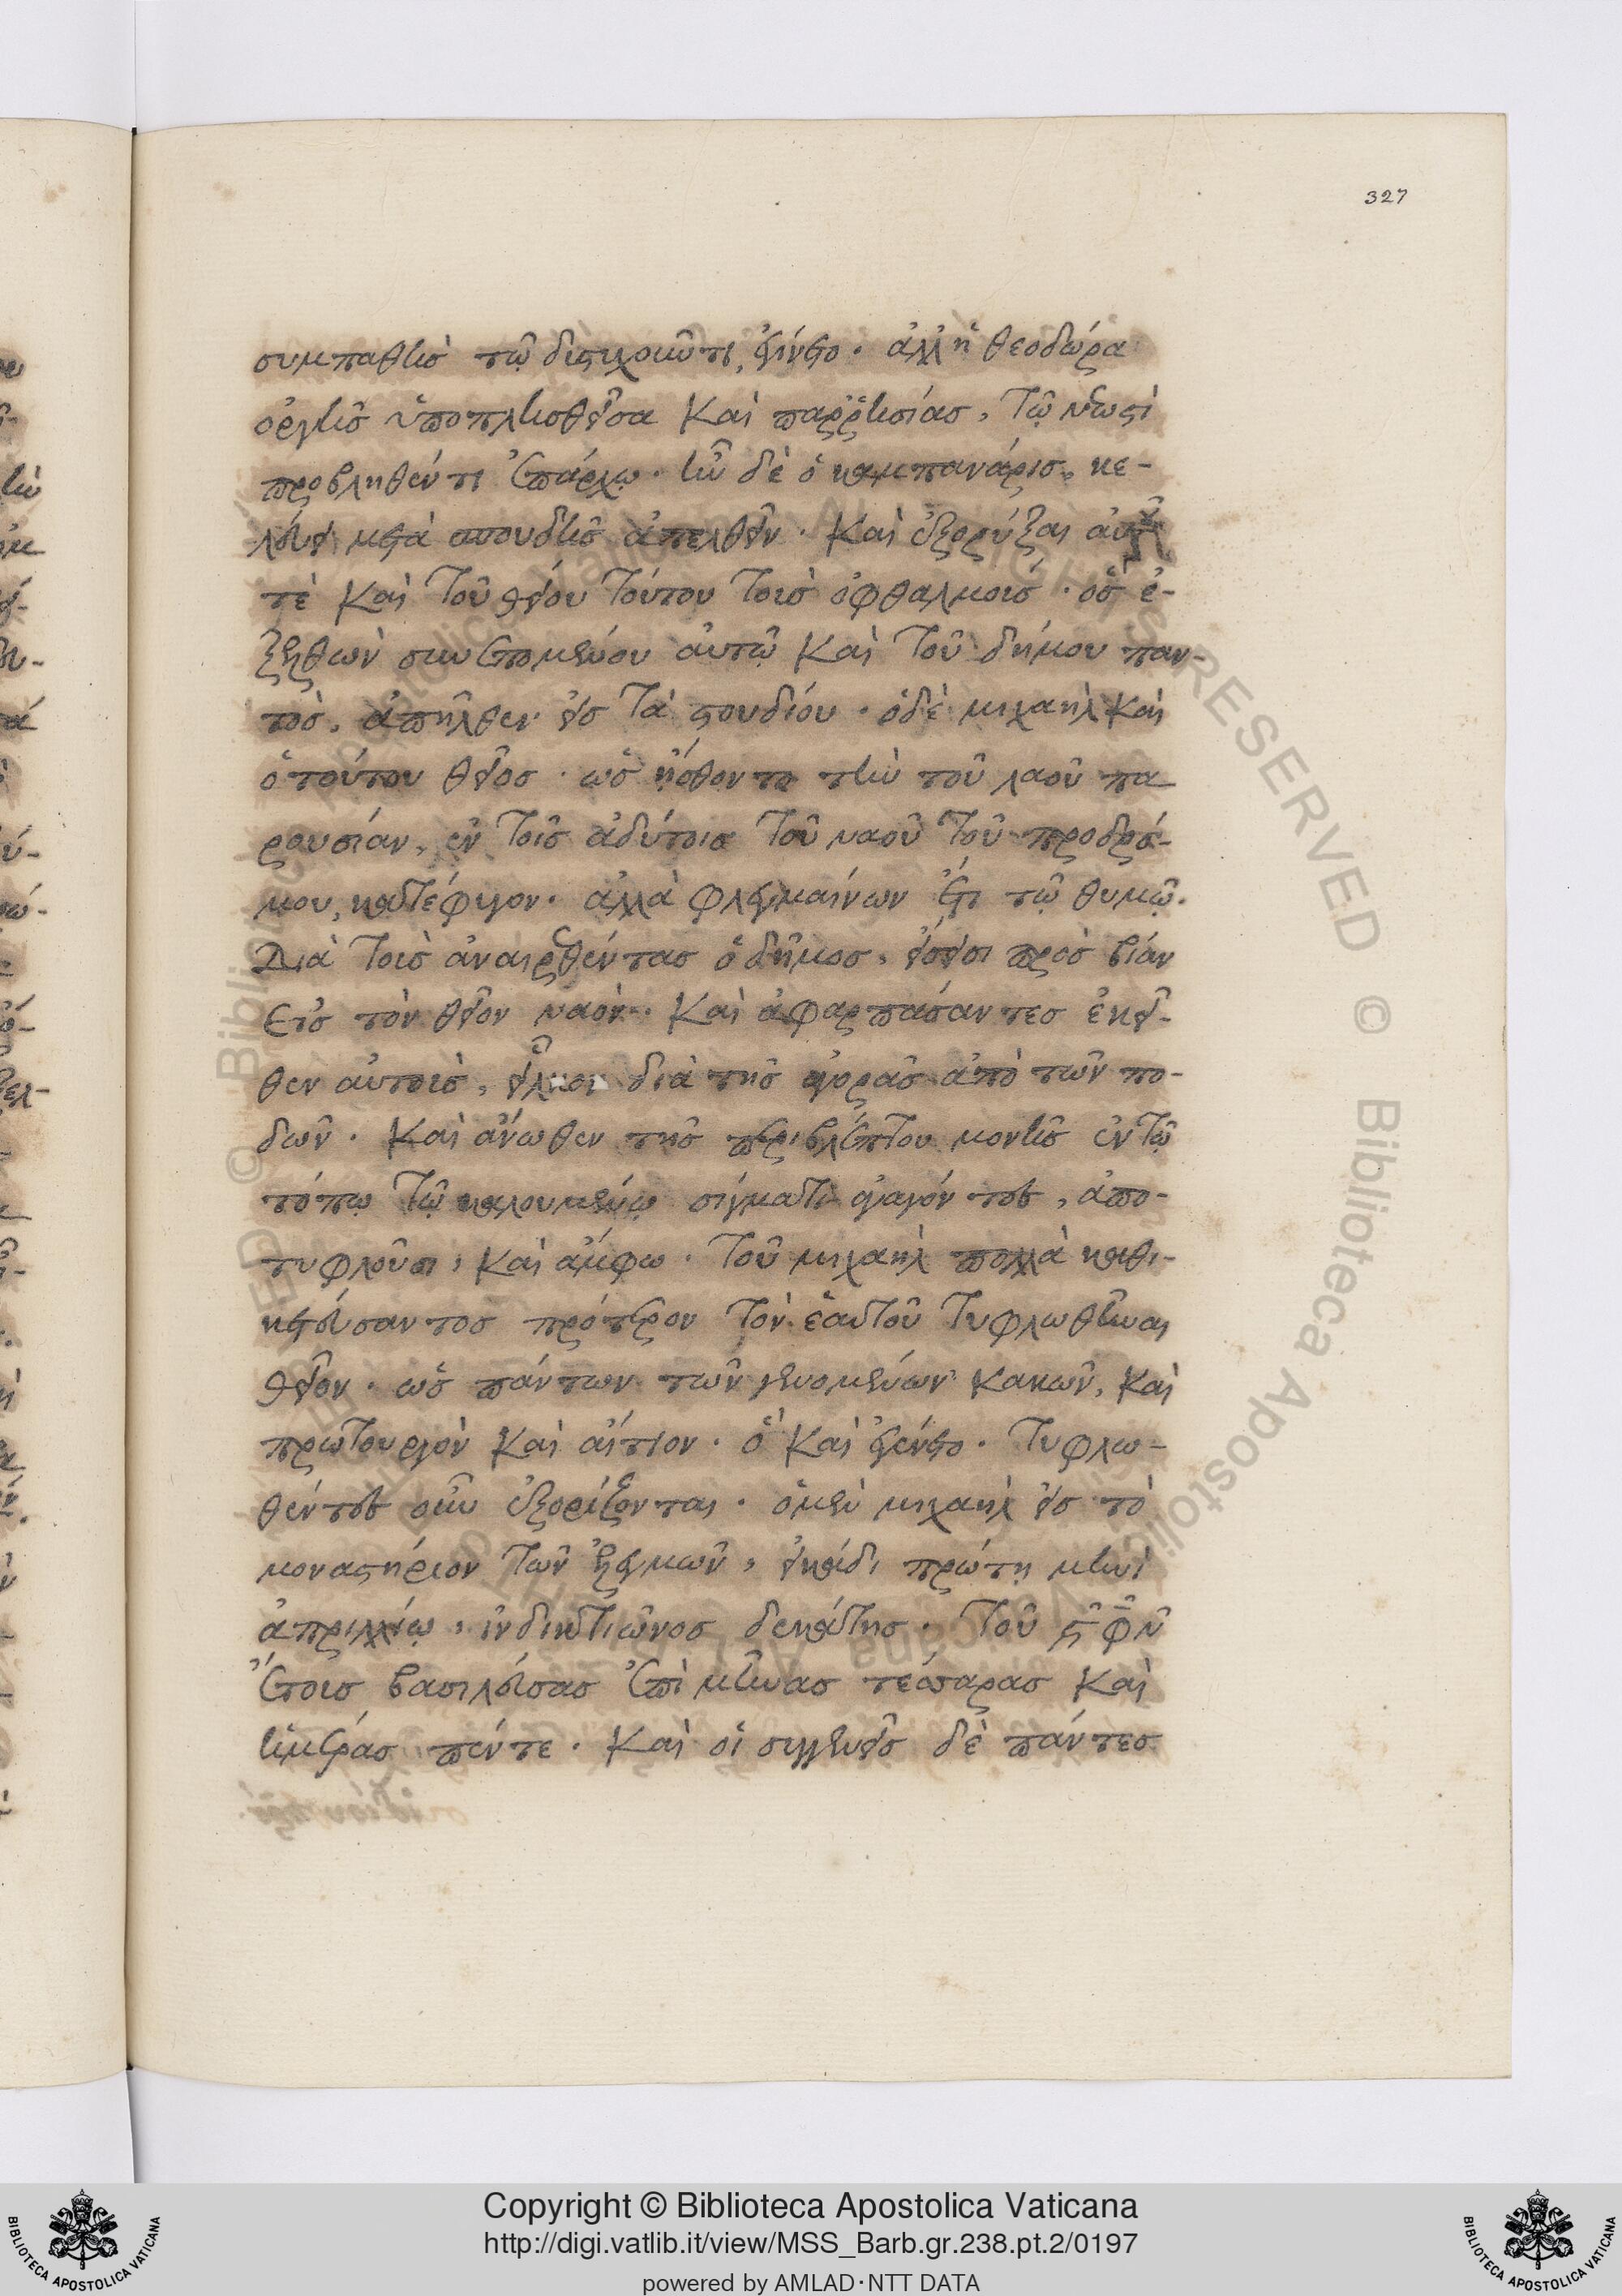 327
συμπαθὴς τῷ δυστυχοῦντι, ἐγίνετο. ἀλλ' ἡ θεοδώρα
ὀργῆς ὑποπλησθεῖσα καὶ παῤῥησίας, τῷ νεωστὶ
προβληθέντι ἐπάρχῳ. ἦν δὲ ὁ καμπανάρης, κε-
λεύει μετὰ σπουδῆς ἀπελθεῖν. καὶ ἐξορύξαι αὐτοῦ
τὲ καὶ τοῦ θείου τούτου τοὺς ὀφθαλμούς. ὃς ἐ-
ξελθὼν συνεπομένου αὐτῷ καὶ τοῦ δήμου παν-
τὸς, ἀπῆλθεν εἰς τὰ στουδίου. ὁ δὲ μιχαὴλ καὶ
ὁ τούτου θεῖος. ὡς ᾔσθοντο τὴν τοῦ λαοῦ πα
ρουσίαν, ἐν τοῖς ἀδύτοις τοῦ ναοῦ τοῦ προδρό-
μου, κατέφυγον. ἀλλὰ φλεγμαίνων ἔτι τῷ θυμῷ.
Διὰ τοὺς ἀναιρεθέντας ὁ δῆμος, εἴσεισι πρὸς βίαν
εἰς τὸν θεῖον ναόν. καὶ ἀφαρπάσαντες ἐκεῖ-
θεν αὐτοὺς, εἷλκον διὰ τῆς ἀγορᾶς ἀπὸ τῶν πο-
δῶν. καὶ ἄνωθεν τῆς περιβλέπτου μονῆς ἐν τῷ
τόπῳ τῷ καλουμένῳ σίγματι ἀγαγόντες, ἀπο-
τυφλοῦσι, καὶ ἄμφω. τοῦ μιχαὴλ πολλὰ καθι-
κετεύσαντος πρότερον τὸν ἑαυτοῦ τυφλωθῆναι
θεῖον. ὡς πάντων τῶν γενομένων κακῶν, καὶ
πρωτουργὸν καὶ αἴτιον. ὃ καὶ ἐγένετο. τυφλω-
θέντες οὖν ἐξορίζονται. ὁ μὲν μιχαὴλ εἰς τὸ
μοναστήριον τῶν ἐλεγμῶν, εἰκάδι πρώτῃ μηνὶ
ἀπριλλίῳ, ἰνδικτιῶνος δεκάτης. τοῦ ϛφν
ἔτους βασιλεύσας ἐπὶ μῆνας τέσσαρας καὶ
ἡμέρας πέντε. καὶ οἱ συγγενεῖς δὲ πάντες
Copyright © Biblioteca Apostolica Vaticana
http://digi.vatlib.it/view/MSS_Barb.gr.238.pt.2/0197
powered by AMLAD·NTT DATA